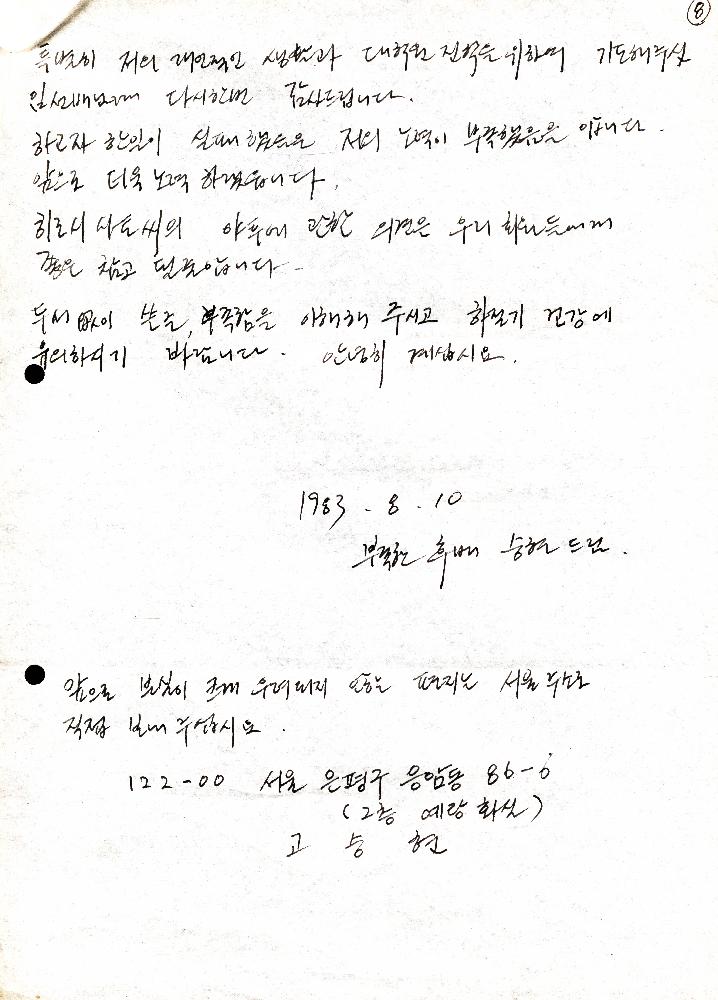 ⑧
특별히 저의 개인적인 생활과 대학원 진학을 위하여 기도해주신
임선배님께 다시한번 감사드립니다.
하고자 한일이 실패했음은 저의 노력이 부족했음을 압니다.
앞으로 더욱 노력 하겠습니다.
히로시 사토씨의 야투에 관한 의견은 우리 회원들에게
좋은 참고 될것입니다.
두서 없이 쓴글, 부족함을 이해해 주시고 하절기 건강에
유의하시기 바랍니다. 안녕히 계십시요.
1983. 8. 10
부족한 후배 승현 드림.
앞으로 분실이 크게 우려되지 않는 편지는 서울 주소로
직접 보내 주십시요.
122-00 서울 은평구 응암동 86-6
(2층 예랑 화실)
고 승 현